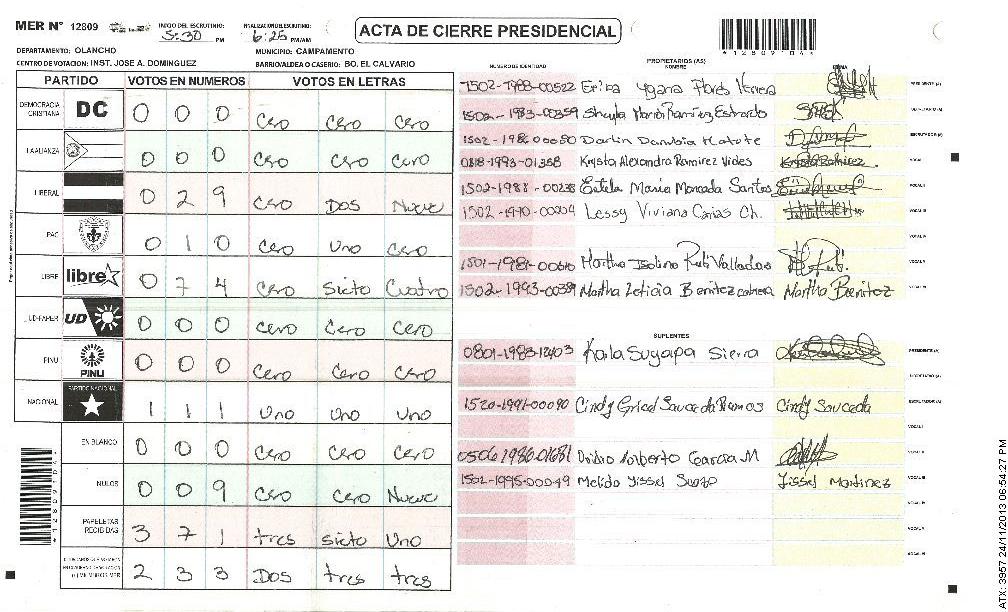 MER N° 12809
INICIO DEL ESCRUTINIO: 5:30 PM
FINALIZACION ESCRUTINIO: 6:25 PM/AM
ACTA DE CIERRE PRESIDENCIAL
*12809104*
DEPARTAMENTO: OLANCHO
MUNICIPIO: CAMPAMENTO
CENTRO DE VOTACION: INST. JOSE A. DOMINGUEZ
BARRIO/ALDEA O CASERIO: BO. EL CALVARIO
PARTIDO VOTOS EN NUMEROS VOTOS EN LETRAS
DEMOCRACIA CRISTIANA DC 0 0 0 Cero Cero Cero
LA ALIANZA 0 0 0 Cero Cero Cero
LIBERAL 0 2 9 Cero Dos Nueve
PAC 0 1 0 Cero Uno Cero
LIBRE libre 0 7 4 Cero Siete Cuatro
UD-FAPER UD 0 0 0 Cero Cero Cero
PINU PINU 0 0 0 Cero Cero Cero
NACIONAL PARTIDO NACIONAL 1 1 1 Uno Uno Uno
EN BLANCO 0 0 0 Cero Cero Cero
NULOS 0 0 9 Cero Cero Nueve
PAPELETAS RECIBIDAS 3 7 1 tres siete Uno
2 3 3 Dos tres tres
NUMERO DE IDENTIDAD
PROPIETARIOS (AS)
NOMBRE
FIRMA
1502-1988-00522 Flores PRESIDENTE (A)
1502-1983-00359 Sheyla Maria Ramirez Estrada SECRETARIO (A)
1502-1986-00080 Darlin ESCRUTADOR (A)
0818-1993-01368 Krysta Alexandra Ramirez Vides Krysta Ramirez VOCAL I
1502-1988-00238 Estela Maria Moncada Santos VOCAL II
1502-1970-00204 Lessy Viviana Carias Ch. VOCAL III
VOCAL IV
1501-1981-00610 Martha Isolina Valladares VOCAL V
1502-1993-00389 Martha Leticia Benitez Cabrera Martha Benitez
SUPLENTES
0801-1983-12403 Karla Suyapa Sierra PRESIDENTE (A)
SECRETARIO (A)
1520-1991-00090 Cindy Gricel Sauceda Ramos Cindy Sauceda ESCRUTADOR (A)
VOCAL I
0506-1986-01681 Norberto Garcia M VOCAL II
1502-1995-00049 Melida Yissel Yissel Martinez VOCAL III
VOCAL IV
VOCAL V
*12809104*
ATX: 3957 24/11/2013 06:54:27 PM